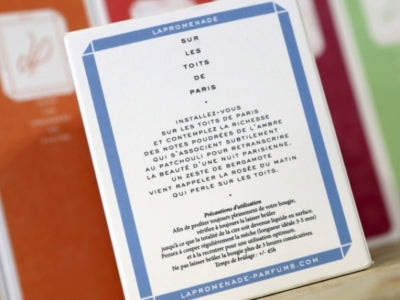 LAPROMENADE
SUR
LES
TOITS
DE
PARIS
INSTALLEZ-VOUS
SUR LES TOITS DE PARIS
ET CONTEMPLEZ LA RICHESSE
DES NOTES POUDRÉES DE L'AMBRE
QUI S'ASSOCIENT SUBTILEMENT
AU PATCHOULI POUR RETRANSCRIRE
LA BEAUTÉ D'UNE NUIT PARISIENNE.
UN ZESTE DE BERGAMOTE
VIENT RAPPELER LA ROSÉE DU MATIN
QUI PERLE SUR LES TOITS.
Précautions d'utilisation
Afin de profiter toujours pleinement de votre bougie,
vérifiez à toujours la laisser brûler
jusqu'à ce que la totalité de la cire soit devenue liquide en surface.
Pensez à couper régulièrement la mèche (longueur idéale 3-5 mm)
et à la recentrer pour une utilisation optimum.
Ne pas laisser brûler la bougie plus de 3 heures consécutives.
Temps de brûlage : +/- 45h
LAPROMENADE-PARFUMS.COM